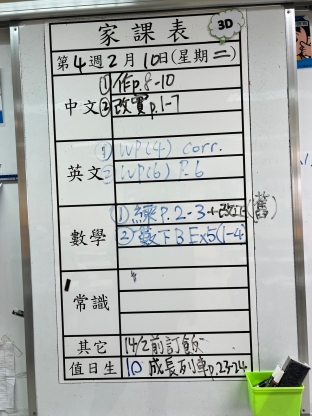 家課表 3D
第4週2月10日(星期二)
中文 ①作p.8-10
②改實p.1-7
英文 ① WP(4) corr.
② WP(6) P.6
數學 ①練P.2-3+改正(舊)
②數下B Ex5(1-4
常識
其它 14/2前訂飯
值日生 10 成長列車p.23-24